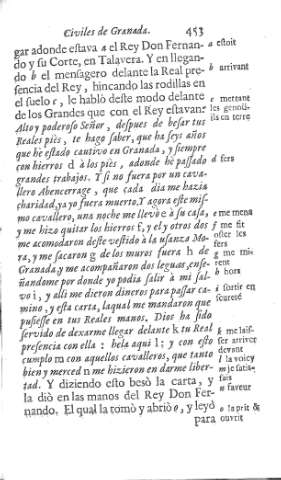 Civiles de Granada. 453
gar adonde estava a el Rey Don Fernan-
do y su Corte, en Talavera. Y en llegan-
do b el mensagero delante la Real pre-
sencia del Rey, hincando las rodillas en
el suelo c, le habló deste modo delante
de los Grandes que con el Rey estavan:
Alto y poderoso Señor, despues de besar tus
Reales piès, te hago saber, que ha seys años
que hè estado cautivo en Granada, y siempre
con hierros d à los piès, adonde hè passado
grandes trabajos. Y si no fuera por un cava-
llero Abencerrage, que cada dia me hazia
charidad, ya yo fuera muerto. Y agora este mis-
mo cavallero, una noche me llevò e à su casa,
y me hizo quitar los hierros f, y el y otros dos
me acomodaron deste vestido à la usanza Mo-
ra, y me sacaron g de los muros fuera h de
Granada y me acompañaron dos leguas, ense-
ñandome por donde yo podia salir à mi sal-
vo i, y alli me dieron dineros para passar ca-
mino, y esta carta, laqual me mandaron que
pusiesse en tus Reales manos. Dios ha sido
servido de dexarme llegar delante k tu Real
presencia con ella: hela aqui l; y con esto
cumplo m con aquellos cavalleros, que tanto
bien y merced n me hizieron en darme liber-
tad. Y diziendo esto besò la carta, y
la diò en las manos del Rey Don Fer-
nando. El qual la tomò y abriò o, y leyó
para
a estoit
b arrivant
c mettant
les genouils
en terre
d fers
e me mena
f me fit
oster les
fers
g me mirent
h hors
i sortir en
seureté
k me laisser
arriver
devant
l la voicy
m je satisfais
n faveur
o la prit &
ouvrit